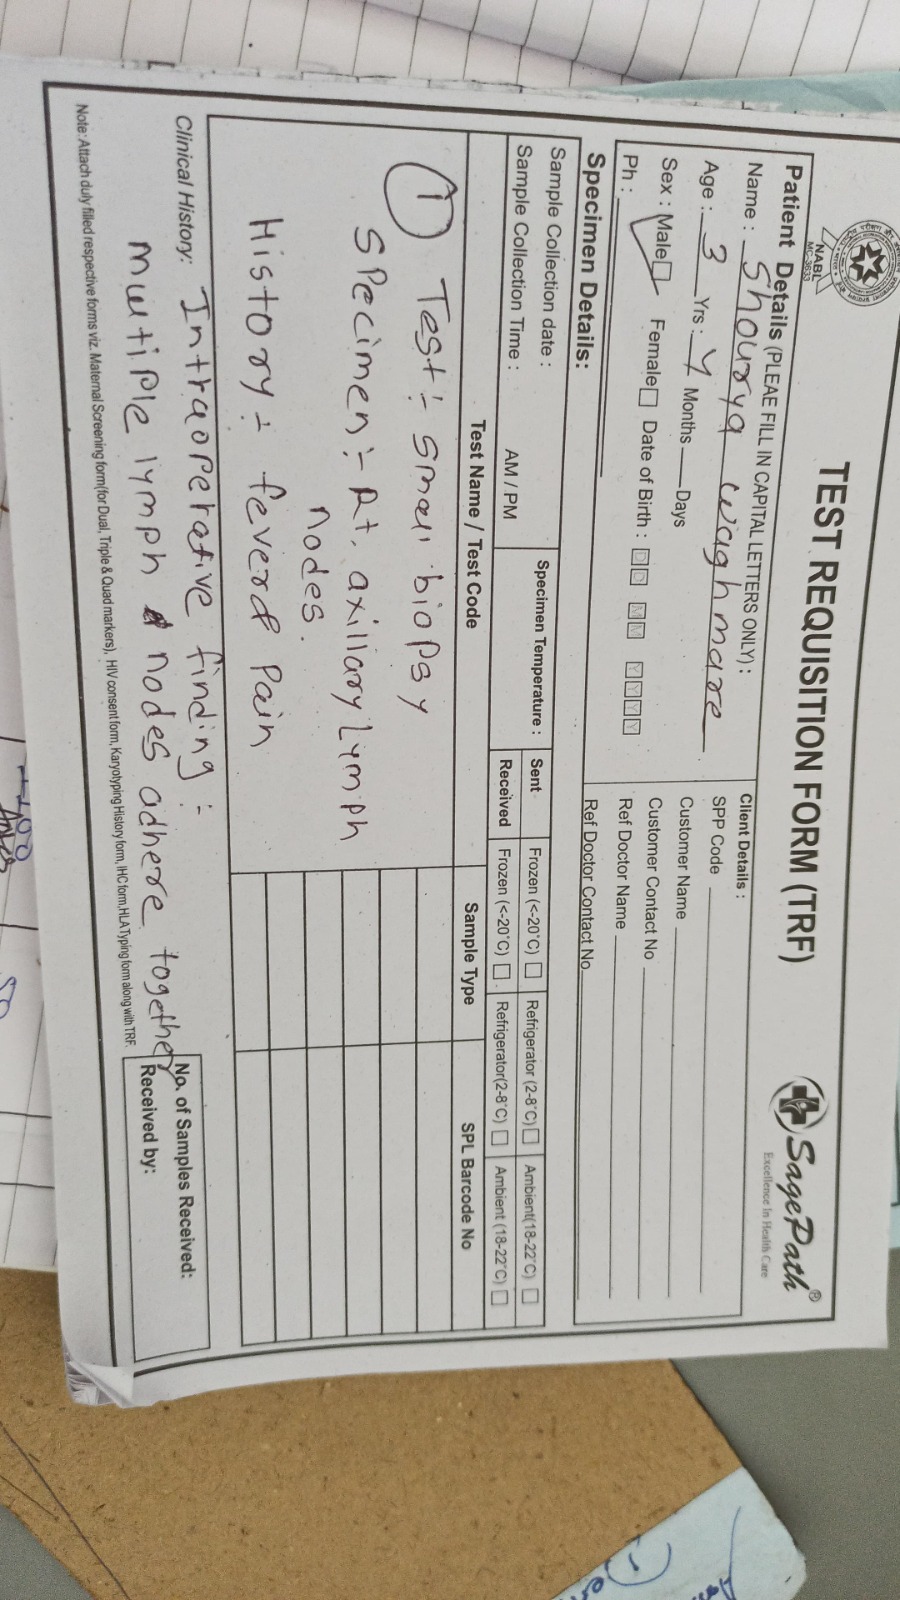 NABL
MC-3633
TEST REQUISITION FORM (TRF)
SagePath®
Excellence In Health Care
Patient Details (PLEAE FILL IN CAPITAL LETTERS ONLY) :
Name : Shourya waghmare
Age : 3 Yrs : Y Months Days
Sex : Male Female Date of Birth : DD MM YYYY
Ph :
Client Details :
SPP Code
Customer Name
Customer Contact No
Ref Doctor Name
Ref Doctor Contact No
Specimen Details:
Sample Collection date :
Sample Collection Time : AM / PM
Specimen Temperature :
Sent Frozen (<-20°C) Refrigerator (2-8°C) Ambient(18-22°C)
Received Frozen (<-20°C) Refrigerator(2-8°C) Ambient (18-22°C)
Test Name / Test Code Sample Type SPL Barcode No
① Test:- small biopsy
Specimen:- Rt. axillary Lymph
nodes.
History:- fever & Pain
Clinical History: Intraoperative finding :-
multiple lymph nodes adhere together
No. of Samples Received:
Received by:
Note: Attach duly filled respective forms viz. Maternal Screening form(for Dual, Triple & Quad markers), HIV consent form, Karyotyping History form, IHC form, HLA Typing form along with TRF.